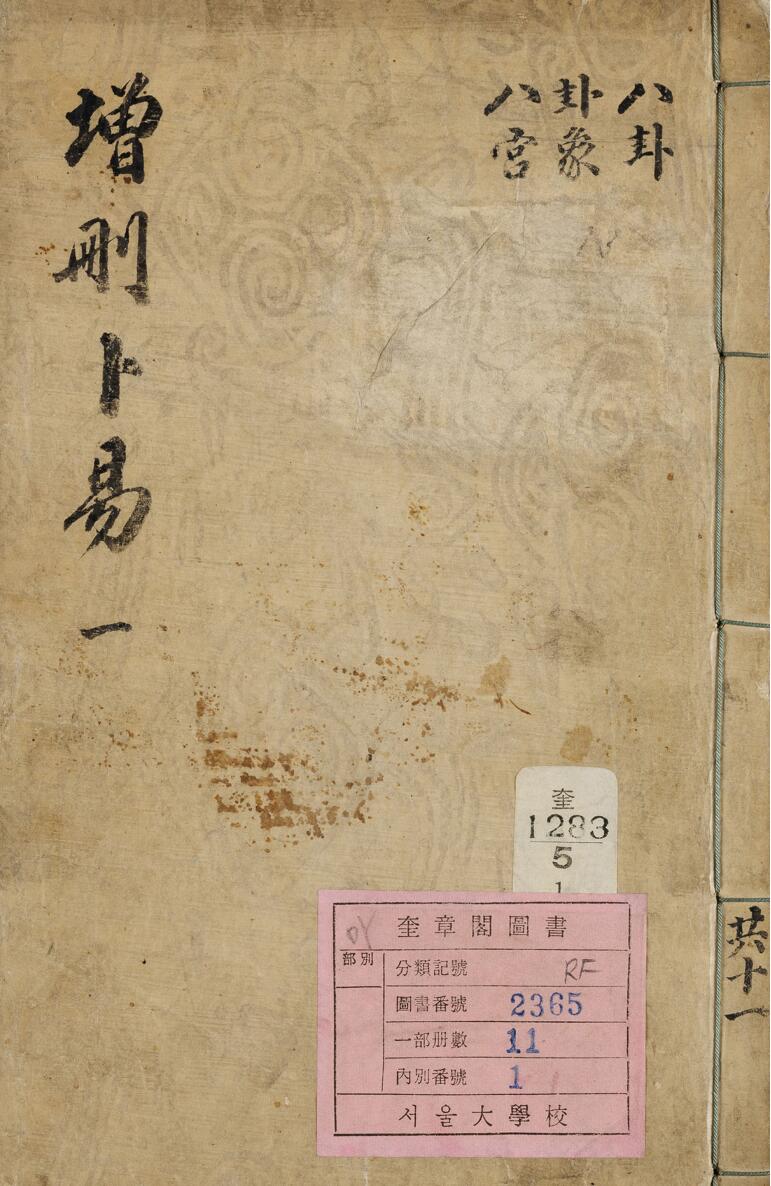 八卦
卦象
八宮
增刪卜易 一
共十一
奎
1283
5
1
奎章閣圖書
部別
分類記號 RF
圖書番號 2365
一部册數 11
內別番號 1
서울大學校